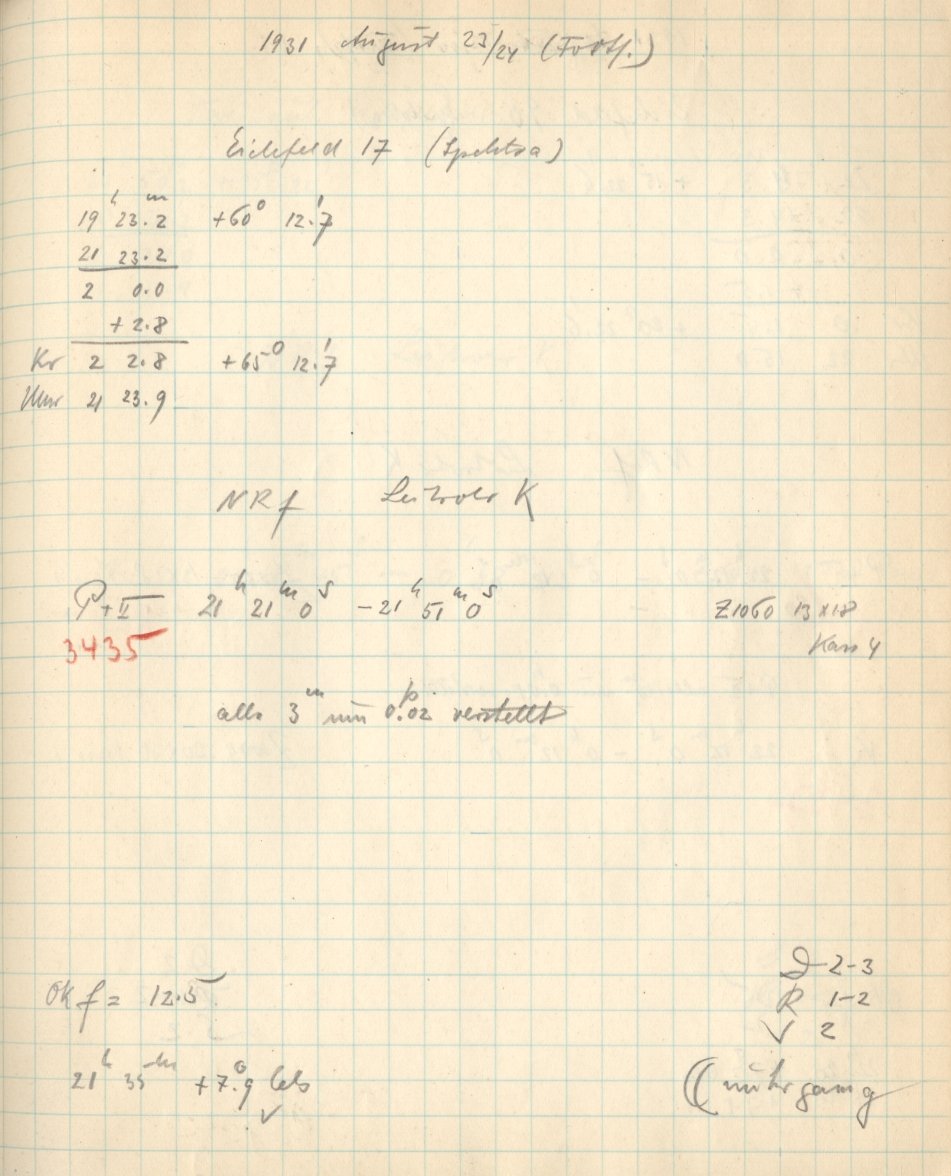 1931 August 23/24 (Forts.)
Eichfeld 17 (Spektra)
19ʰ 23.ᵐ2 +60° 12.'7
21 23.2
2 0.0
+2.8
Kr 2 2.8 +65° 12.'7
Uhr 21 23.9
NRf Leitrohr K
P+II 21ʰ 21ᵐ 0ˢ - 21ʰ 51ᵐ 0ˢ Z1060 13x18
3435 Kass 4
alle 3ᵐ um 0.ᵖ02 verstellt
OK f = 12.5
D 2-3
R 1-2
V 2
21ʰ 35ᵐ +7.°9 Cels